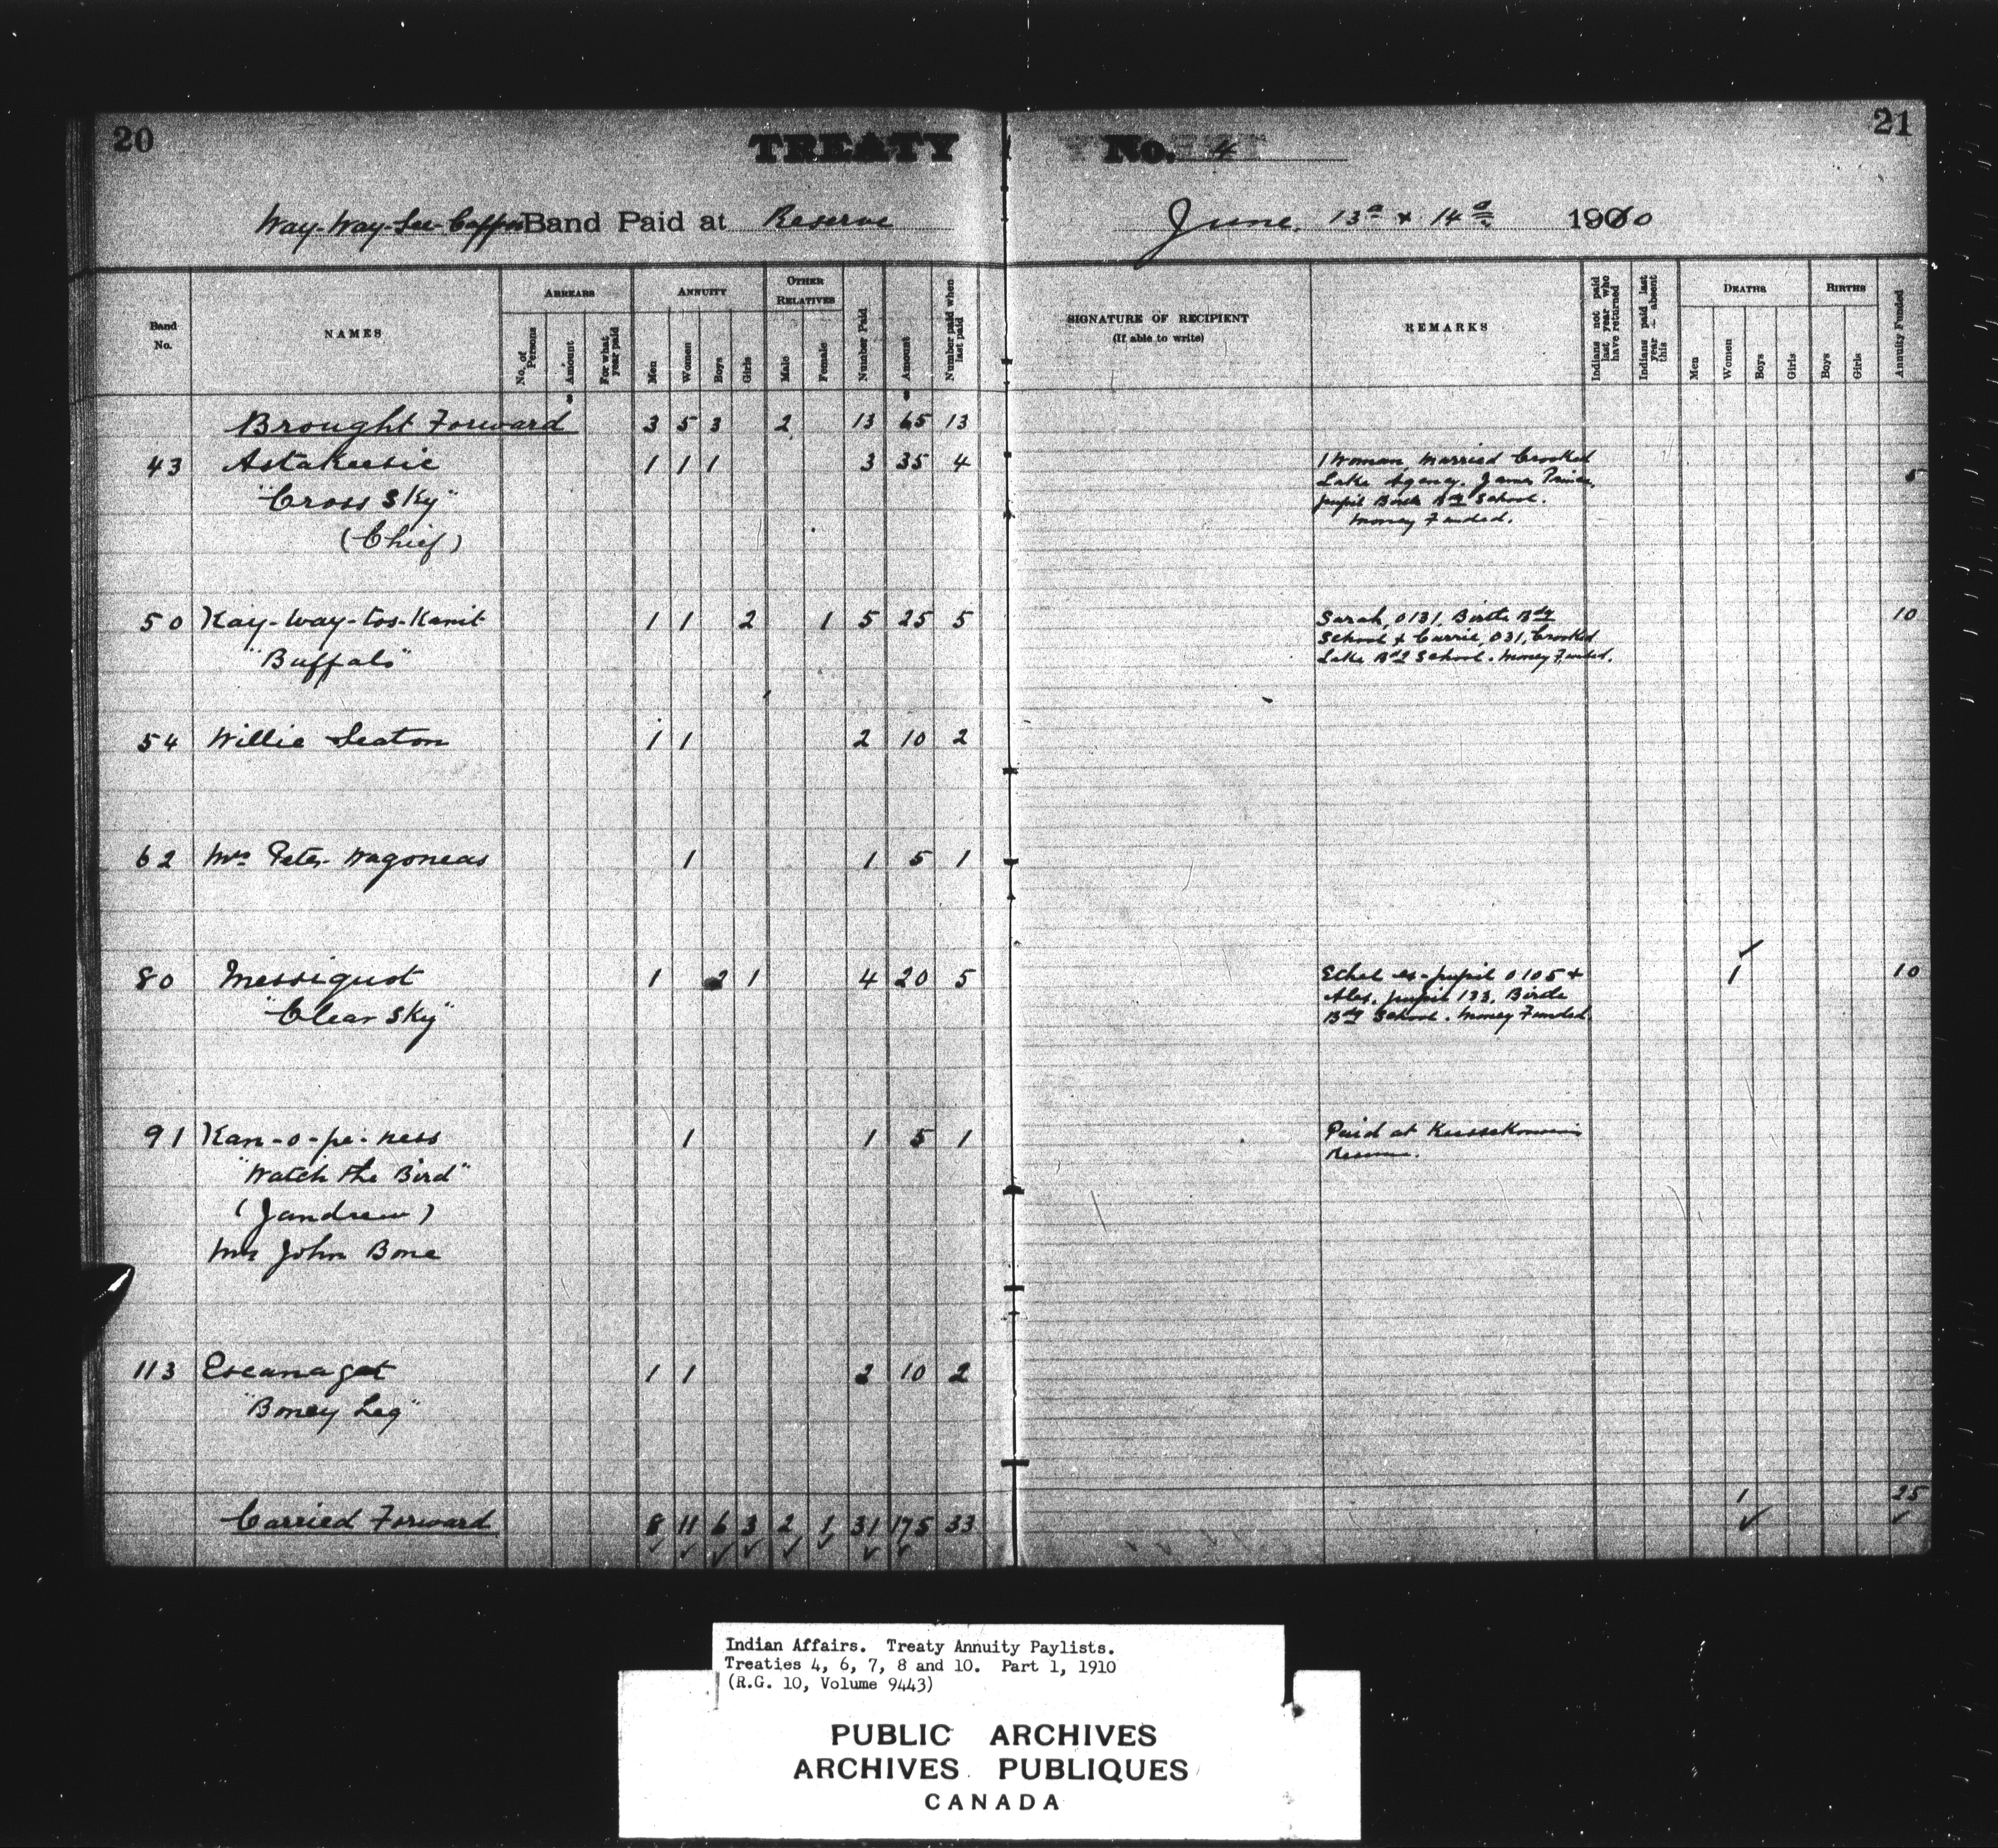 20
TREATY No. 4
21
Way-Way-See-Cappo Band Paid at Reserve June 13th & 14th 1910
Band No. NAMES ARREARS No. of Persons Amount For what year paid ANNUITY Men Women Boys Girls OTHER RELATIVES Male Female Number Paid Amount Number paid when last paid SIGNATURE OF RECIPIENT (If able to write) REMARKS Indians not paid last year who have returned Indians paid last year absent this DEATHS Men Women Boys Girls BIRTHS Boys Girls Annuity Funded
Brought Forward 3 5 3 2 13 65 13
43 Astakeesic 1 1 1 3 35 4 1 Woman Married Crooked
"Cross Sky" Lake Agency. James Prince, 5
(Chief) pupil Birtle Bdg School.
Money Funded.
50 Kay-way-tos-Kamit 1 1 2 1 5 25 5 Sarah, 0131, Birtle Bdg 10
"Buffalo" School & Carrie, 031, Crooked
Lake Bdg School. Money Funded.
54 Willie Seaton 1 1 2 10 2
62 Mrs Peter Wagoneas 1 1 5 1
80 Messiquot 1 2 1 4 20 5 Ethel ex-pupil 0105 & 1 10
"Clear Sky" Alex. pupil 133, Birtle
Bdg School. Money Funded.
91 Kan-o-pe-ness 1 1 5 1 Paid at Keeseekowenin
"Watch the Bird" Reserve.
(Jandrew)
Mrs John Bone
113 Escanagat 1 1 2 10 2
"Boney Leg"
Carried Forward 8 11 6 3 2 1 31 175 33 1 25
Indian Affairs. Treaty Annuity Paylists.
Treaties 4, 6, 7, 8 and 10. Part 1, 1910
(R.G. 10, Volume 9443)
PUBLIC ARCHIVES
ARCHIVES PUBLIQUES
CANADA